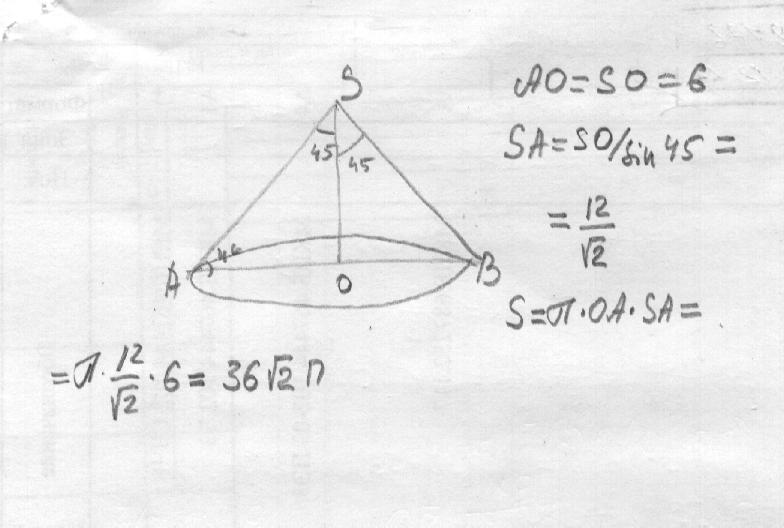 S
45 45
45
A O B
AO = SO = 6
SA = SO/sin 45 =
= 12/√2
S = π · OA · SA =
= π · 12/√2 · 6 = 36√2 π